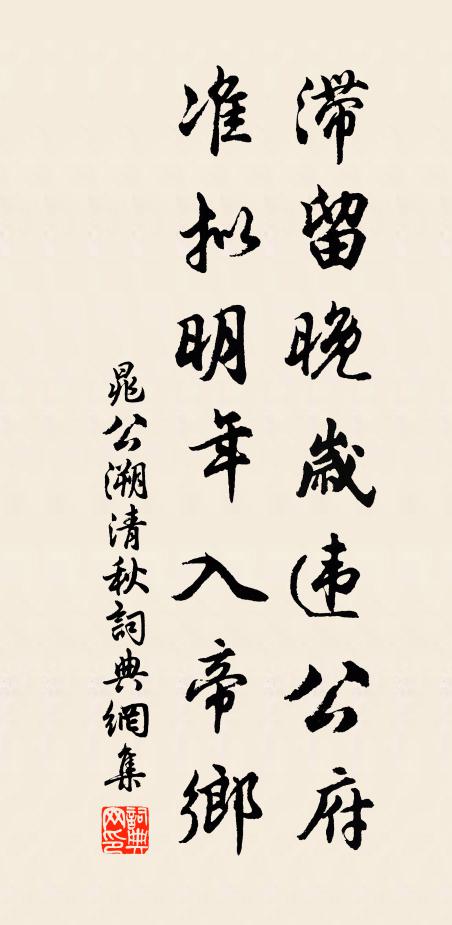 滞留晚歳违公府
准拟明年入帝鄉
晁公溯清秋詞典網集
詞典网印